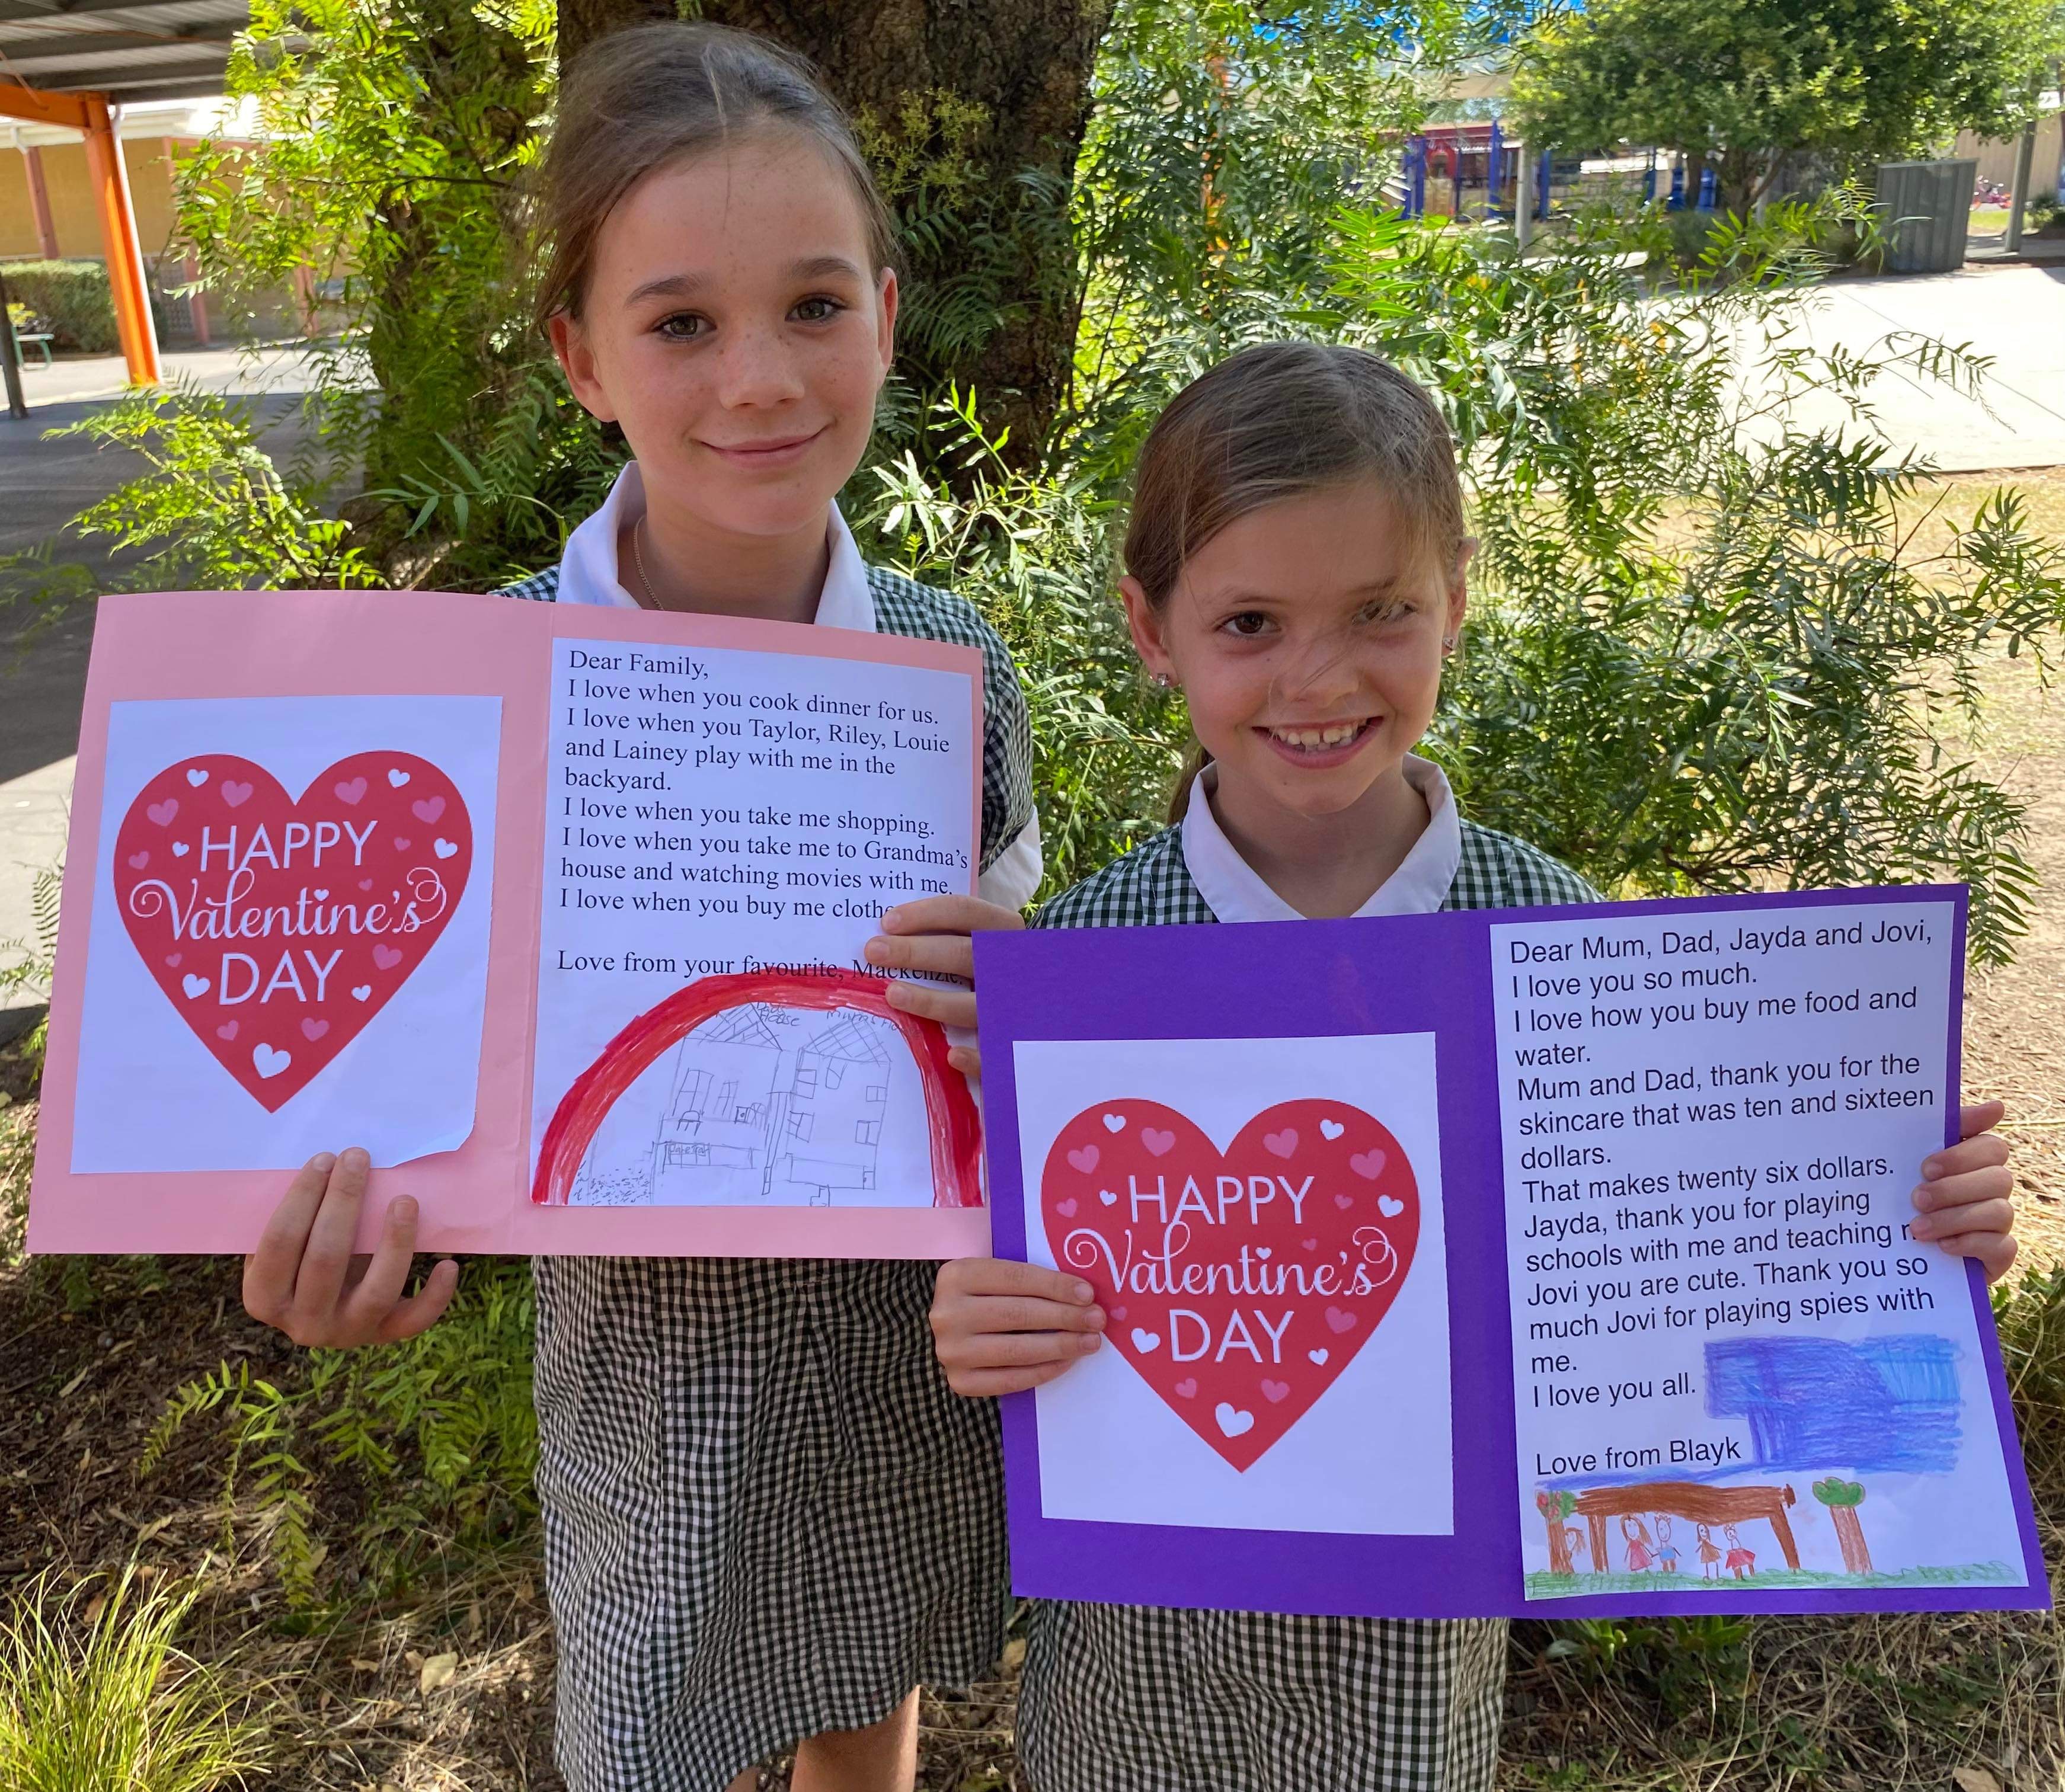 HAPPY
Valentine's
DAY
Dear Family,
I love when you cook dinner for us.
I love when you Taylor, Riley, Louie
and Lainey play with me in the
backyard.
I love when you take me shopping.
I love when you take me to Grandma's
house and watching movies with me.
I love when you buy me
Love from your favourite, Mackenzie.
HOUSE
HAPPY
Valentine's
DAY
Dear Mum, Dad, Jayda and Jovi,
I love you so much.
I love how you buy me food and
water.
Mum and Dad, thank you for the
skincare that was ten and sixteen
dollars.
That makes twenty six dollars.
Jayda, thank you for playing
schools with me and teaching
Jovi you are cute. Thank you so
much Jovi for playing spies with
me.
I love you all.
Love from Blayk